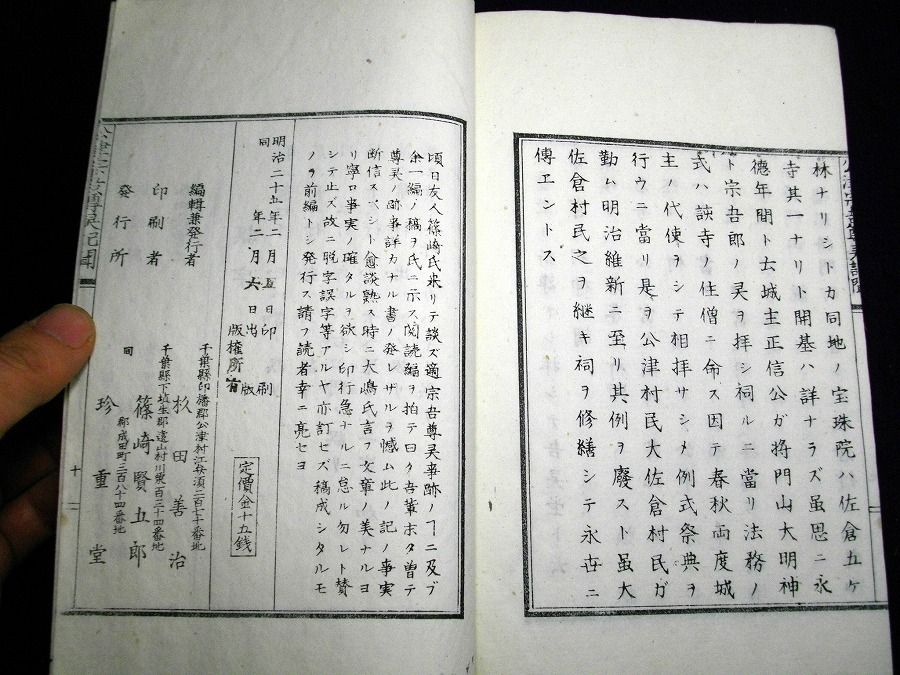 林ナリシトカ同地ノ宝珠院ハ佐倉五ケ
寺其一ナリト開基ハ詳ナラズ虽思ニ永
徳年間ト云城主正信公ガ将門山大明神
ト宗吾郎ノ㚑ヲ拝シ祠ルニ當リ法務ノ
式ハ該寺ノ住僧ニ命ス因テ春秋両度城
主ノ代使ヲシテ相拝サシメ例式祭典ヲ
行ウニ當リ是ヲ公津村民大佐倉村民ガ
勤ム明治維新ニ至リ其例ヲ廢スト虽大
佐倉村民之ヲ継キ祠ヲ修繕シテ永世ニ
傳エントス
頃日友人篠﨑氏来リテ談ズ適宗吾尊㚑事跡ノヿニ及ブ
余一編ノ稿ヲ氏ニ示ス閲読編ヲ拍テ曰ク吾輩未タ曽テ
尊㚑ノ跡事詳カナル書ノ発レザルヲ憾ム此ノ記ノ事実
断信スベシト愈談熟ス時ニ大嶋氏言フ文章ノ美ナルヨ
リ寧ロ事実ノ確タルヲ欲シ印行急ナルニ怠ル勿レト賛
シテ止ズ故ニ脱字誤字等アルヤ亦訂セズ稿成シタルモ
ノヲ前編トシ発行ス請フ読者幸ニ亮セヨ
明治二十五年二月五日印刷
同年二月六日出版
版権所有
定價金十五銭
千葉縣印旛郡公津村江弁須二百七十番地
編輯兼発行者 杦田善治
千葉縣下埴生郡遠山村川栗百二十四番地
印刷者 篠﨑賢五郎
同郡成田町三百八十四番地
発行所 珍重堂
十